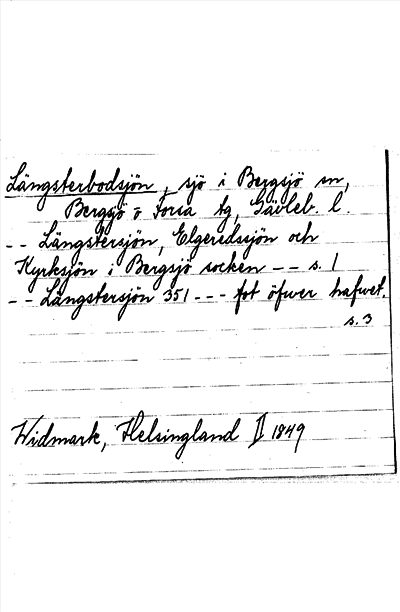 Längsterbodsjön, sjö i Bergsjö sn,
Bergsjö o Forsa tg, Gävleb. l.
-- Längstersjön, Elgeredssjön och
Kyrksjön i Bergsjö socken -- s. 1
-- Längstersjön 351 --- fot öfwer hafwet.
s. 3
Widmark, Helsingland II 1849